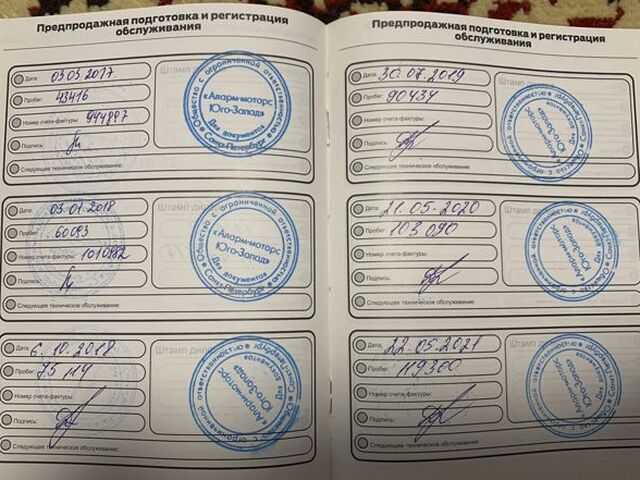 Предпродажная подготовка и регистрация
обслуживания
Дата: 03.03.2017
Пробег: 43416
Номер счета-фактуры: 944887
Подпись:
Следующее техническое обслуживание:
Штамп
Общество с ограниченной ответственностью
«Аларм-моторс
Юго-Запад»
Для документов
Санкт-Петербург
Дата: 03.01.2018
Пробег: 60093
Номер счета-фактуры: 1010982
Подпись:
Следующее техническое обслуживание:
Штамп
Общество с ограниченной ответственностью
«Аларм-моторс
Юго-Запад»
Для документов
Санкт-Петербург
Дата: 6.10.2018
Пробег:
Номер счета-фактуры:
Подпись:
Следующее техническое обслуживание:
Штамп
с ограниченной ответственностью
«Аларм-моторс
Юго-Запад»
Для документов
Санкт-Петербург
Предпродажная подготовка и регистрация
обслуживания
Дата: 30.07.2019
Пробег: 90434
Номер счета-фактуры:
Подпись:
Следующее техническое обслуживание:
Штамп
«Аларммоторс
Юго-Запад»
Для документов
Санкт-Петербург
Дата: 21.05.2020
Пробег: 103090
Номер счета-фактуры:
Подпись:
Следующее техническое обслуживание:
Штамп
«Аларм-моторс
Юго-Запад»
Для документов
Санкт-Петербург
Дата: 22.05.2021
Пробег: 119300
Номер счета-фактуры:
Подпись:
Следующее техническое обслуживание:
Штамп
«Аларм-моторс
Юго-Запад»
Для документов
Санкт-Петербург